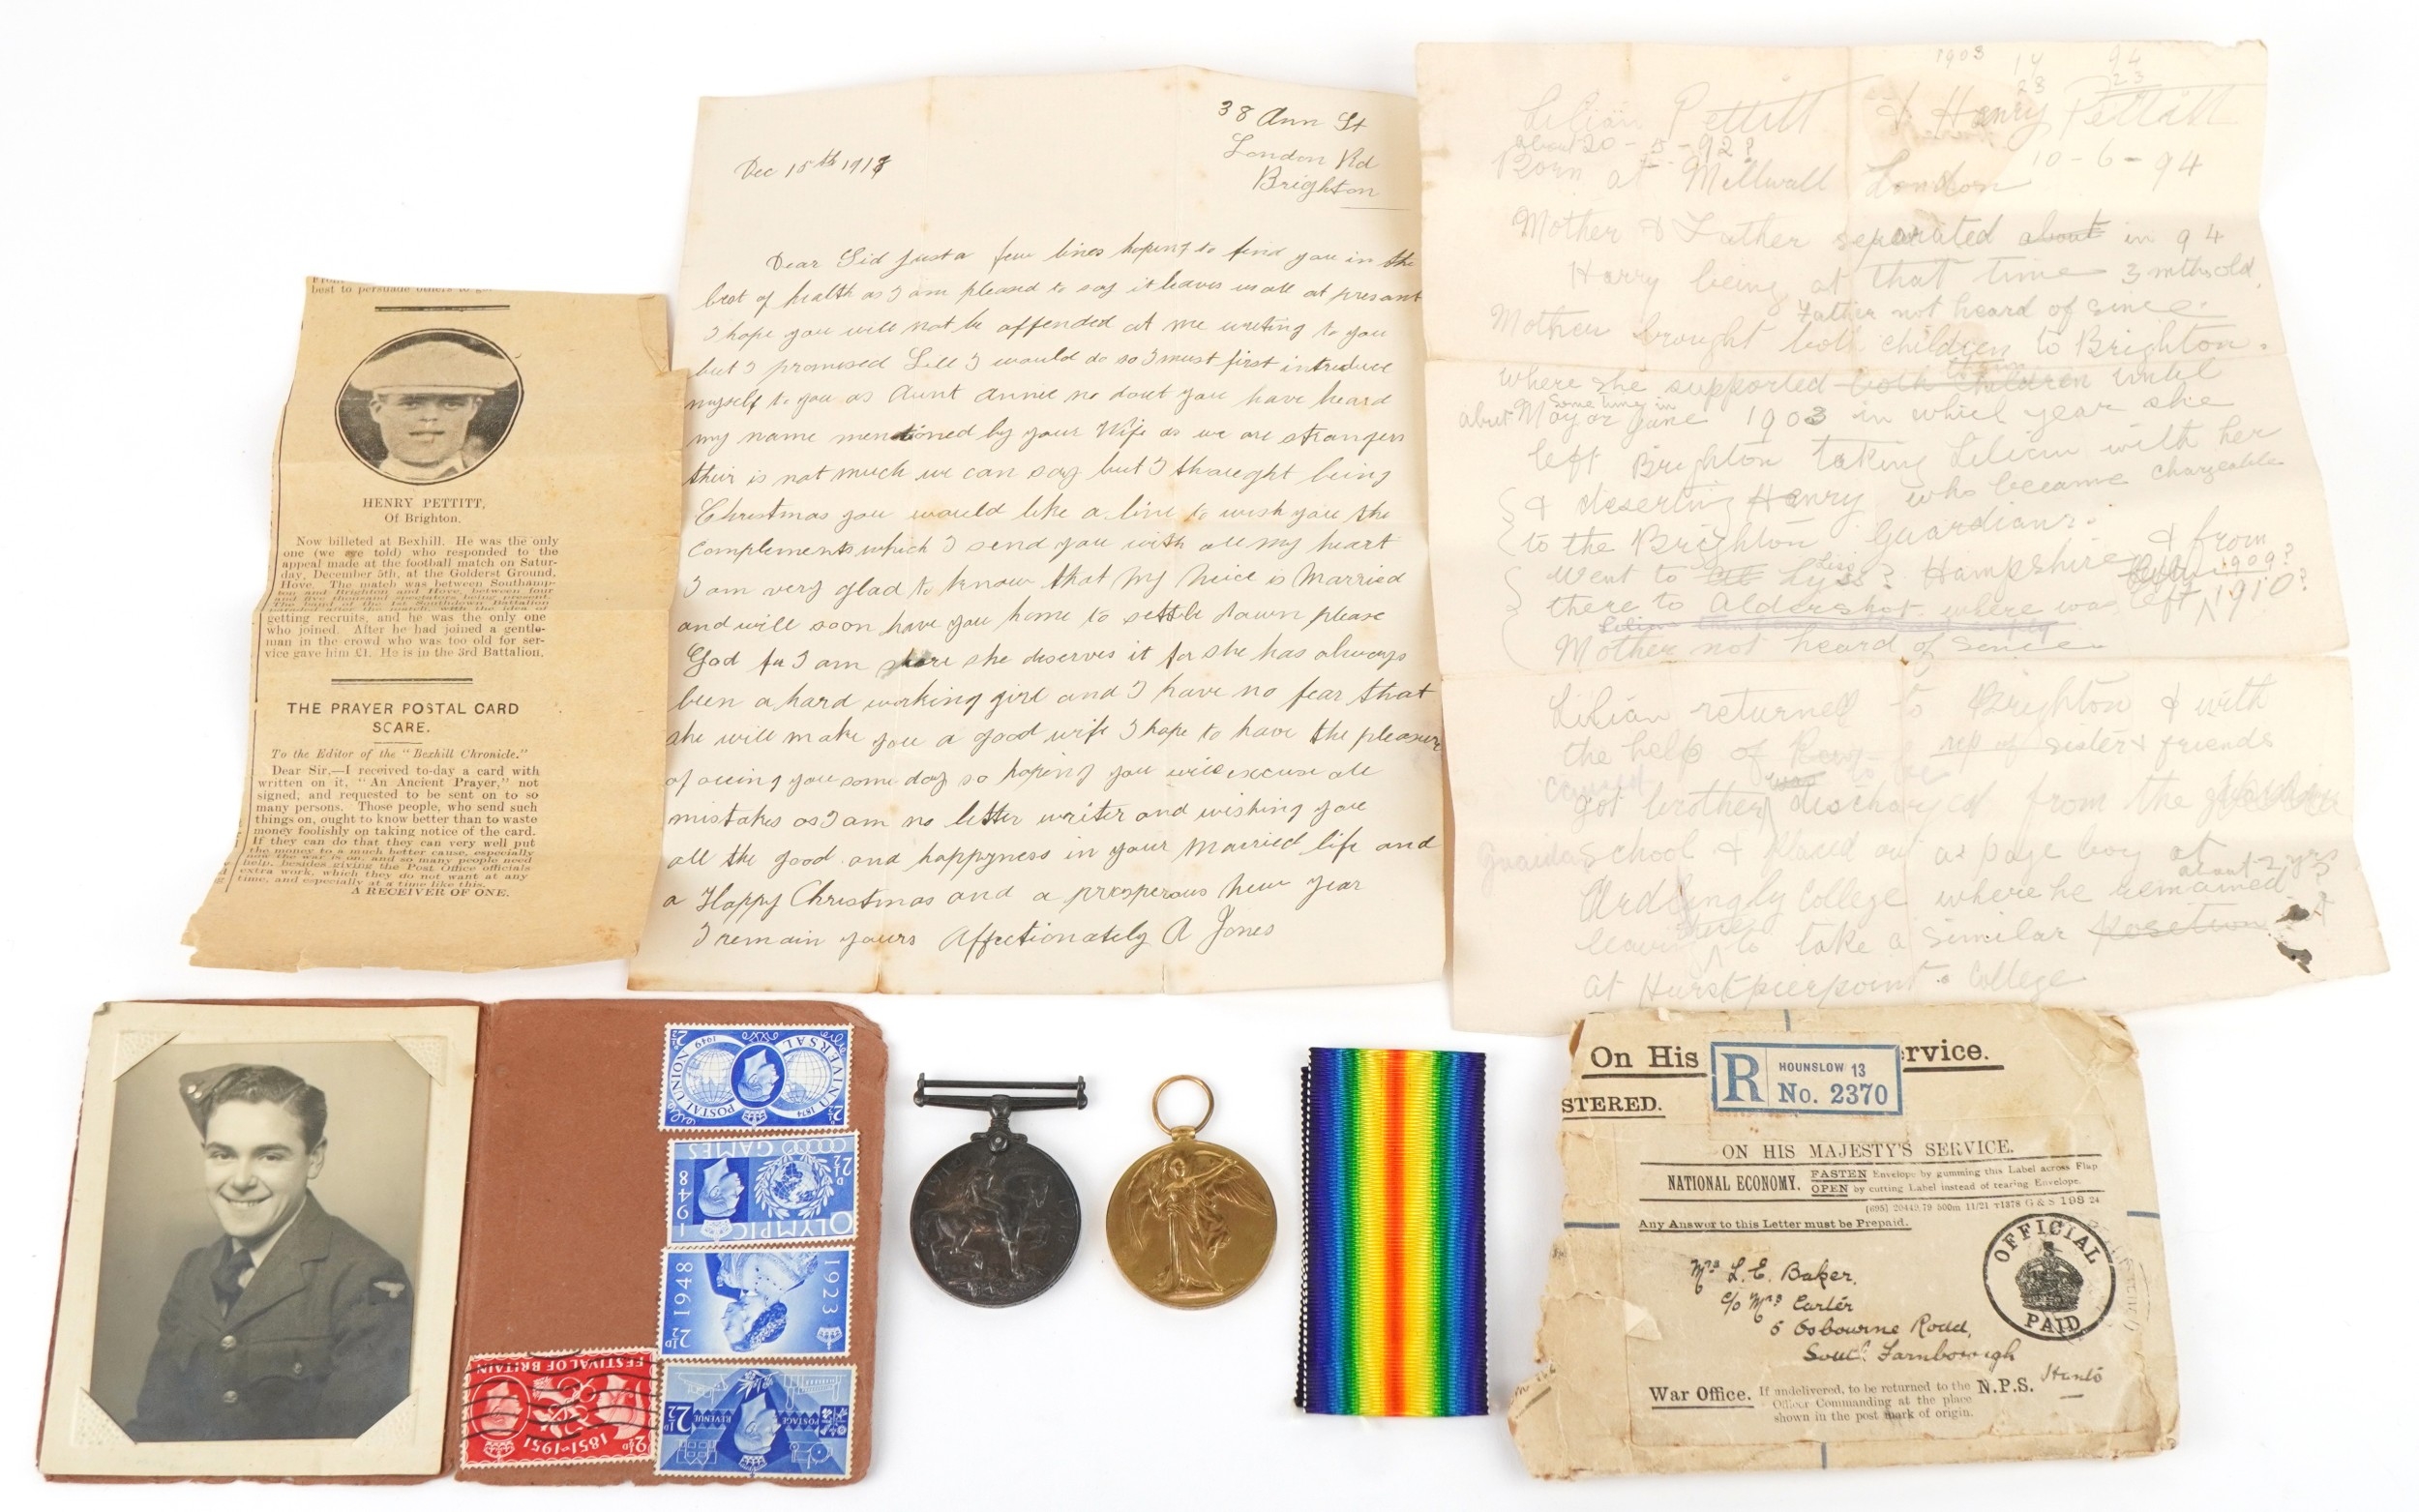 best to persuade others to go
HENRY PETTITT,
Of Brighton.
Now billeted at Bexhill. He was the only
one (we are told) who responded to the
appeal made at the football match on Satur-
day, December 5th, at the Golderst Ground,
Hove. The match was between Southamp-
ton and Brighton and Hove, between four
and five thousand spectators being present.
The band of the 1st Southdown Battalion
getting recruits, and he was the only one
who joined. After he had joined a gentle-
man in the crowd who was too old for ser-
vice gave him £1. He is in the 3rd Battalion.
THE PRAYER POSTAL CARD
SCARE.
To the Editor of the "Bexhill Chronicle."
Dear Sir,—I received to-day a card with
written on it, "An Ancient Prayer," not
signed, and requested to be sent on to so
many persons. Those people, who send such
things on, ought to know better than to waste
money foolishly on taking notice of the card.
If they can do that they can very well put
the money to a much better cause, especially
now the war is on, and so many people need
help, besides giving the Post Office officials
extra work, which they do not want at any
time, and especially at a time like this.
A RECEIVER OF ONE.
38 Ann St
London Rd
Brighton
Dec 15th
Dear Sid Just a few lines hoping to find you in the
best of health as I am pleased to say it leaves us all at presant
I hope you will not be offended at me writing to you
but I promised Lill I would do so I must first introduce
myself to you as Aunt Annie no dout you have heard
my name mentioned by your Wife as we are strangers
their is not much we can say but I thought being
Christmas you would like a line to wish you the
complements which I send you with all my heart
I am very glad to know that my Neice is Married
and will soon have you home to settle down please
God for I am shore she deserves it for she has always
been a hard working girl and I have no fear that
she will make you a good wife I hope to have the pleasure
of seeing you some day so hoping you will excuse all
mistakes as I am no letter writer and wishing you
all the good and happyness in your Married life and
a Happy Christmas and a prosperous new year
I remain yours Affectionately A Jones
1903 14 94
28 23
Lilian Pettitt & Henry Pettitt
about 20-5-92? 10-6-94
Born at Millwall London
Mother & Father separated about in 94
Harry being at that time 3 mths old,
Father not heard of since.
Mother brought both children to Brighton.
where she supported both children until
about May or some time in June 1903 in which year she
left Brighton taking Lilian with her
& deserting Henry who became chargeable
to the Brighton Guardians. & from
went to Lyss? Hampshire 1909?
there to Aldershot where was left 1910?
Mother not heard of since
Lilian returned to Brighton & with
the help of rep of sister & friends
got brother discharged from the
School & placed out as page boy at
Ardlingly College where he remained about 2 yrs
leaving to take a similar Position
at Hurstpierpoint College
UNIVERSAL POSTAL UNION
1874 1949
2½D
OLYMPIC GAMES
1948
2½D
1923 1948
2½D
FESTIVAL OF BRITAIN
1851-1951
2½D
POSTAGE REVENUE
2½D
On His rvice.
R HOUNSLOW 13
No. 2370
STERED.
ON HIS MAJESTY'S SERVICE.
NATIONAL ECONOMY. FASTEN Envelope by gumming this Label across Flap
OPEN by cutting Label instead of tearing Envelope.
Any Answer to this Letter must be Prepaid.
OFFICIAL
PAID
Mrs L. E. Baker.
c/o Mrs Carter
5 Osbourne Road,
South Farnborough
Hants
War Office. If undelivered, to be returned to the N.P.S.
Officer Commanding at the place
shown in the post mark of origin.